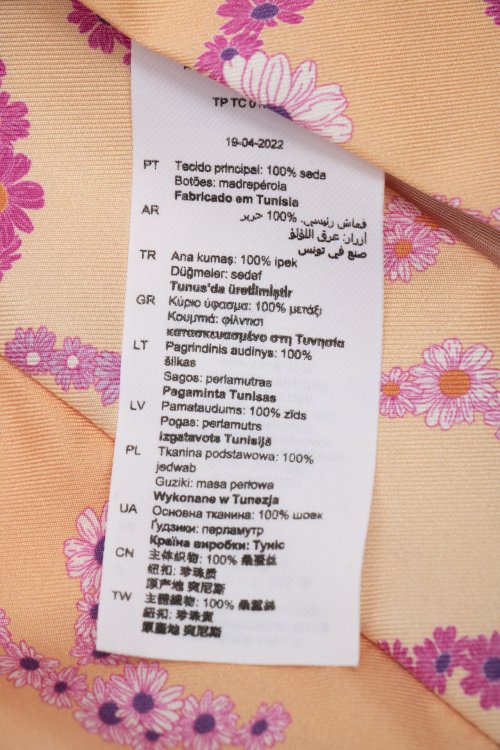 TP TC 01
19-04-2022
PT Tecido principal: 100% seda
Botões: madrepérola
Fabricado em Tunisia
AR قماش رئيسي، 100% حرير
أزرار: عرق اللؤلؤ
صنع في تونس
TR Ana kumaş: 100% ipek
Düğmeler: sedef
Tunus'da üretilmiştir
GR Κύριο ύφασμα: 100% μετάξι
Κουμπιά: φίλντισι
κατασκευασμένο στη Τυνησία
LT Pagrindinis audinys: 100%
šilkas
Sagos: perlamutras
Pagaminta Tunisas
LV Pamataudums: 100% zīds
Pogas: perlamutrs
Izgatavots Tunisijā
PL Tkanina podstawowa: 100%
jedwab
Guziki: masa perłowa
Wykonane w Tunezja
UA Основна тканина: 100% шовк
Ґудзики: перламутр
Країна виробки: Туніс
CN 主体织物: 100% 桑蚕丝
纽扣: 珍珠质
原产地 突尼斯
TW 主體織物: 100% 桑蠶絲
紐扣: 珍珠質
原產地 突尼斯